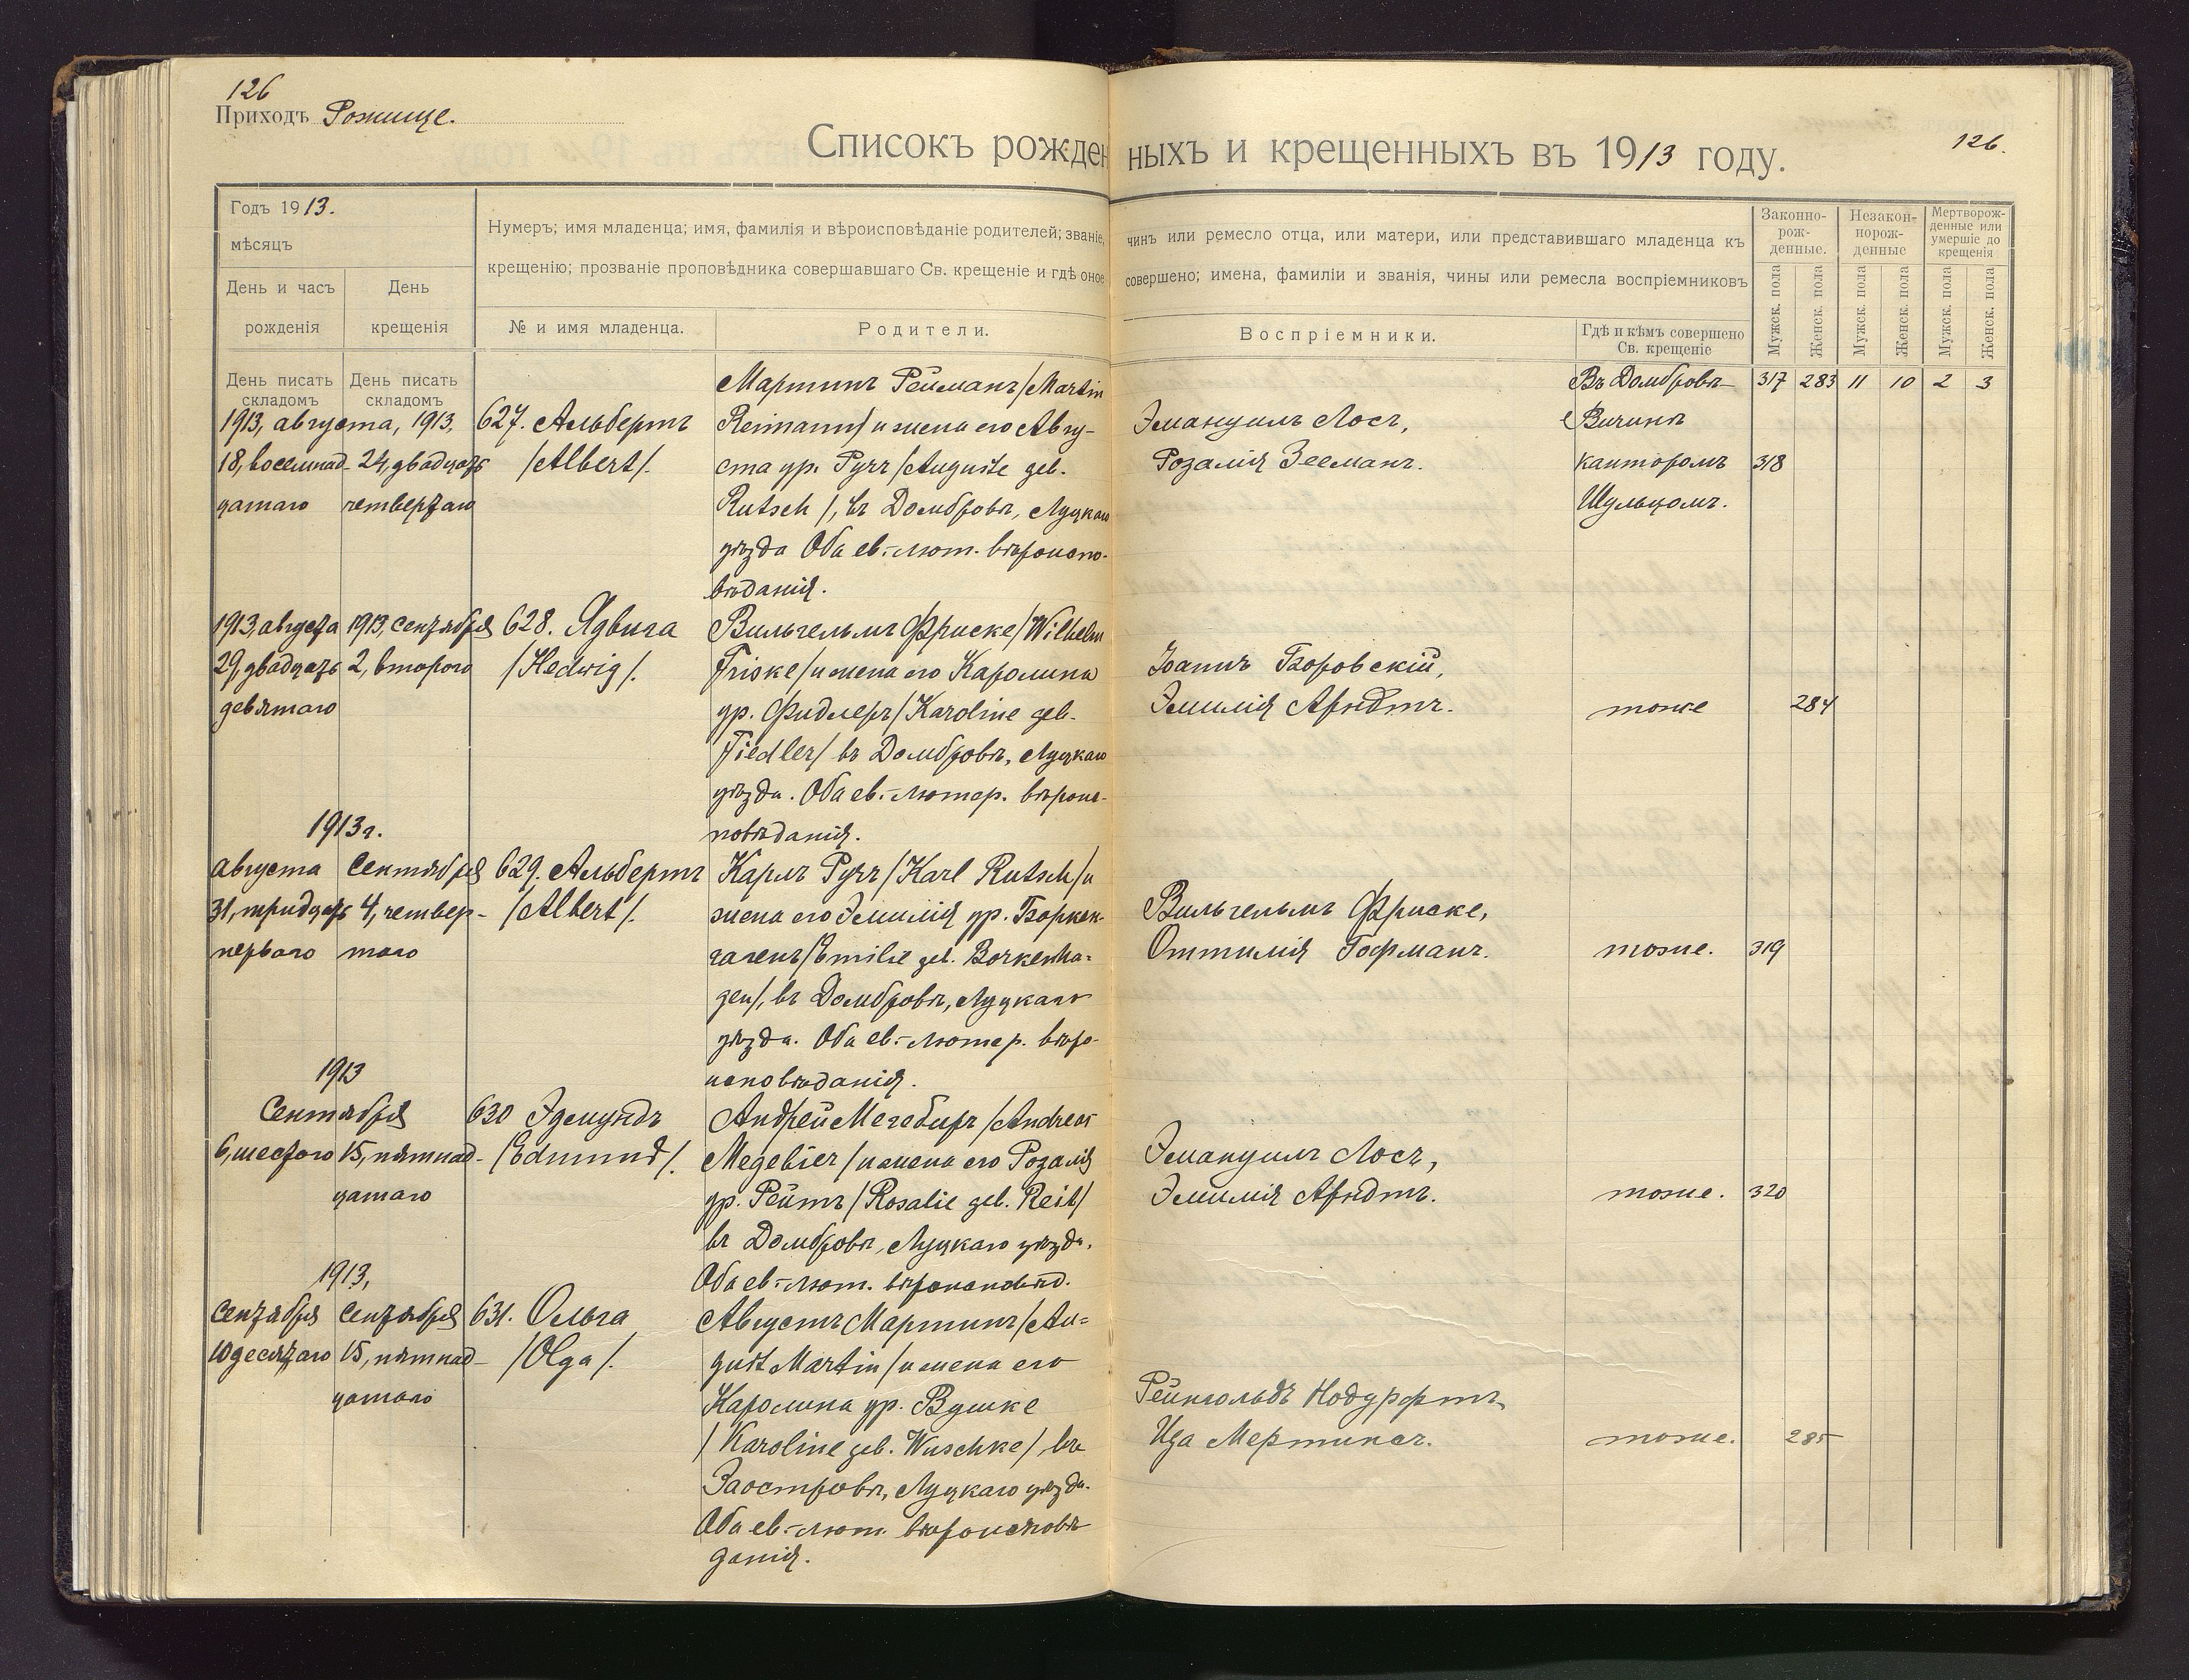 126
Приходъ Рожище.
Списокъ рожденныхъ и крещенныхъ въ 1913 году.
126.
Годъ 1913.
мѣсяцъ
День и часъ рожденія
День крещенія
Нумеръ; имя младенца; имя, фамилія и вѣроисповѣданіе родителей; званіе, чинъ или ремесло отца, или матери, или представившаго младенца къ
крещенію; прозваніе проповѣдника совершавшаго Св. крещеніе и гдѣ оное совершено; имена, фамиліи и званія, чины или ремесла воспріемниковъ
№ и имя младенца.
Родители.
Воспріемники.
Гдѣ и кѣмъ совершено
Св. крещеніе
Законно-
рож-
денные.
Незакон-
норож-
денные
Мертворож-
денные или
умершіе до
крещенія
Мужск. пола
Женск. пола
Мужск. пола
Женск. пола
Мужск. пола
Женск. пола
День писать
складомъ
День писать
складомъ
317 283 11 10 2 3
1913, августа, 1913,
18, восемнад-
цатаго
24, двадцать
четвертаго
627. Альбертъ
/Albert/.
Мартинъ Рейманъ/Martin
Reimann/ и жена его Авгу-
ста ур. Рутъ/Auguste geb.
Rutsch/, въ Домбровѣ, Луцкаго
уѣзда Оба ев.-лют. вѣроиспо-
вѣданія.
Эмануилъ Лосъ,
Розалія Зееманъ.
Въ Домбровѣ-
Вичинѣ
канторомъ
Шульцомъ.
318
1913, августа
29, двадцать
девятаго
1913, сентября
2, второго
628. Ядвига
/Hedwig/.
Вильгельмъ Фриске/Wilhelm
Friske/ и жена его Каролина
ур. Фидлеръ/Karoline geb.
Fiedler/ въ Домбровѣ, Луцкаго
уѣзда. Оба ев.-лютер. вѣроис-
повѣданія.
Іоаннъ Боровскій,
Эмилія Арндтъ.
тоже
284
1913 г.
августа
31, тридцать
перваго
сентября
4, четвер-
таго
629. Альбертъ
/Albert/.
Карлъ Руч/Karl Rutsch/ и
жена его Эмилія ур. Боркен-
гагенъ/Emilie geb. Borkenha-
gen/, въ Домбровѣ, Луцкаго
уѣзда. Оба ев.-лютер. вѣро-
исповѣданія.
Вильгельмъ Фриске,
Оттилія Гофманъ.
тоже.
319
1913
Сентября
6, шестого
15, пятнад-
цатаго
630 Эдмундъ
/Edmund/.
Андрей Мегебиръ/Andreas
Megebier/ и жена его Розалія
ур. Рейтъ/Rosalie geb. Reit/
въ Домбровѣ, Луцкаго уѣзда.
Оба ев.-лют. вѣроисповѣд.
Эмануилъ Лосъ,
Эмилія Арндтъ.
тоже.
320
1913,
Сентября
10 десятаго
Сентября
15, пятнад-
цатаго
631. Ольга
/Olga/.
Августъ Мартинъ/Au-
gust Martin/ и жена его
Каролина ур. Вушке
/Karoline geb. Wuschke/ въ
Заостровѣ, Луцкаго уѣзда.
Оба ев.-лют. вѣроисповѣ-
данія.
Рейнгольдъ Нодурфтъ
Ида Мертинсъ.
тоже.
285